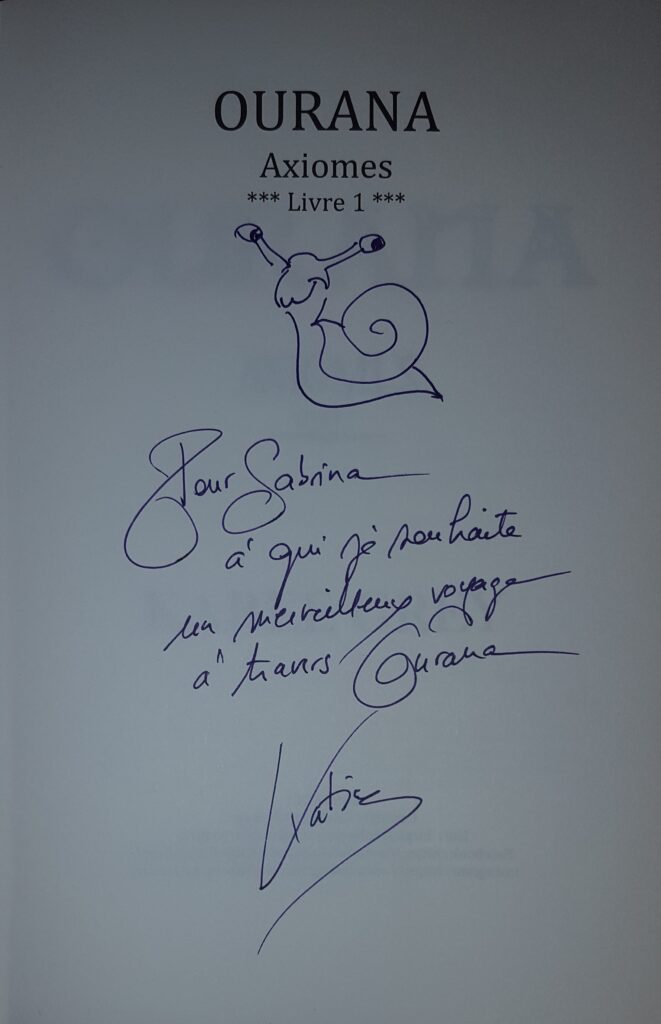 OURANA
Axiomes
*** Livre 1 ***
Pour Sabrina
à qui je souhaite
un merveilleux voyage
à travers Ourana